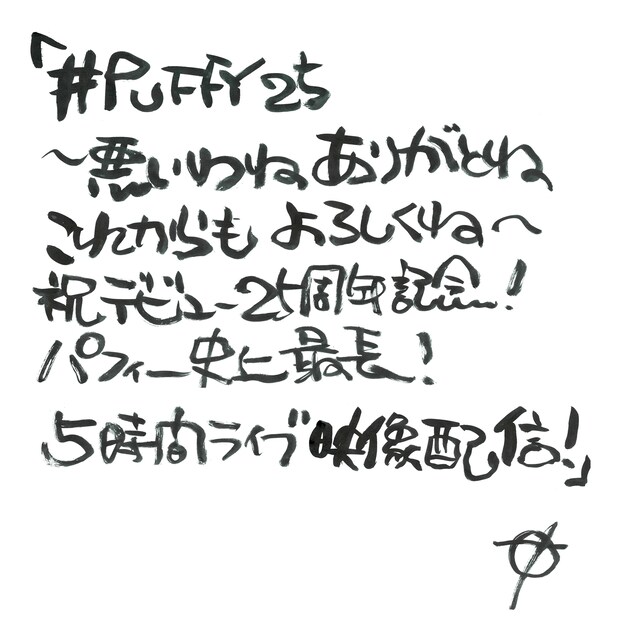 「#PUFFY25
~悪いわね ありがとね
これからも よろしくね~
祝デビュー25周年記念!
パフィー史上最長!
5時間ライブ映像配信!」